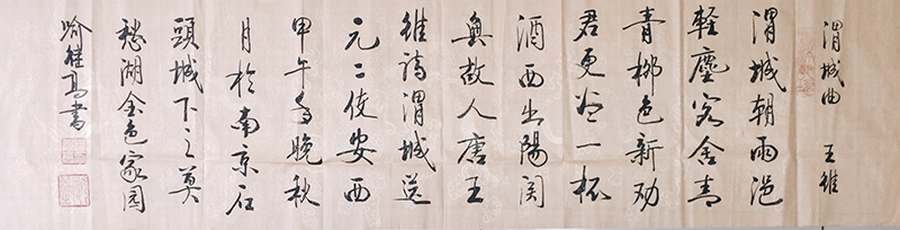 渭城曲 王維
渭城朝雨浥
輕塵客舍青
青柳色新劝
君更尽一杯
酒西出陽関
無故人唐王
維詩渭城送
元二使安西
甲午年晚秋
月於南京石
頭城下之莫
愁湖金色家园
喻继高書